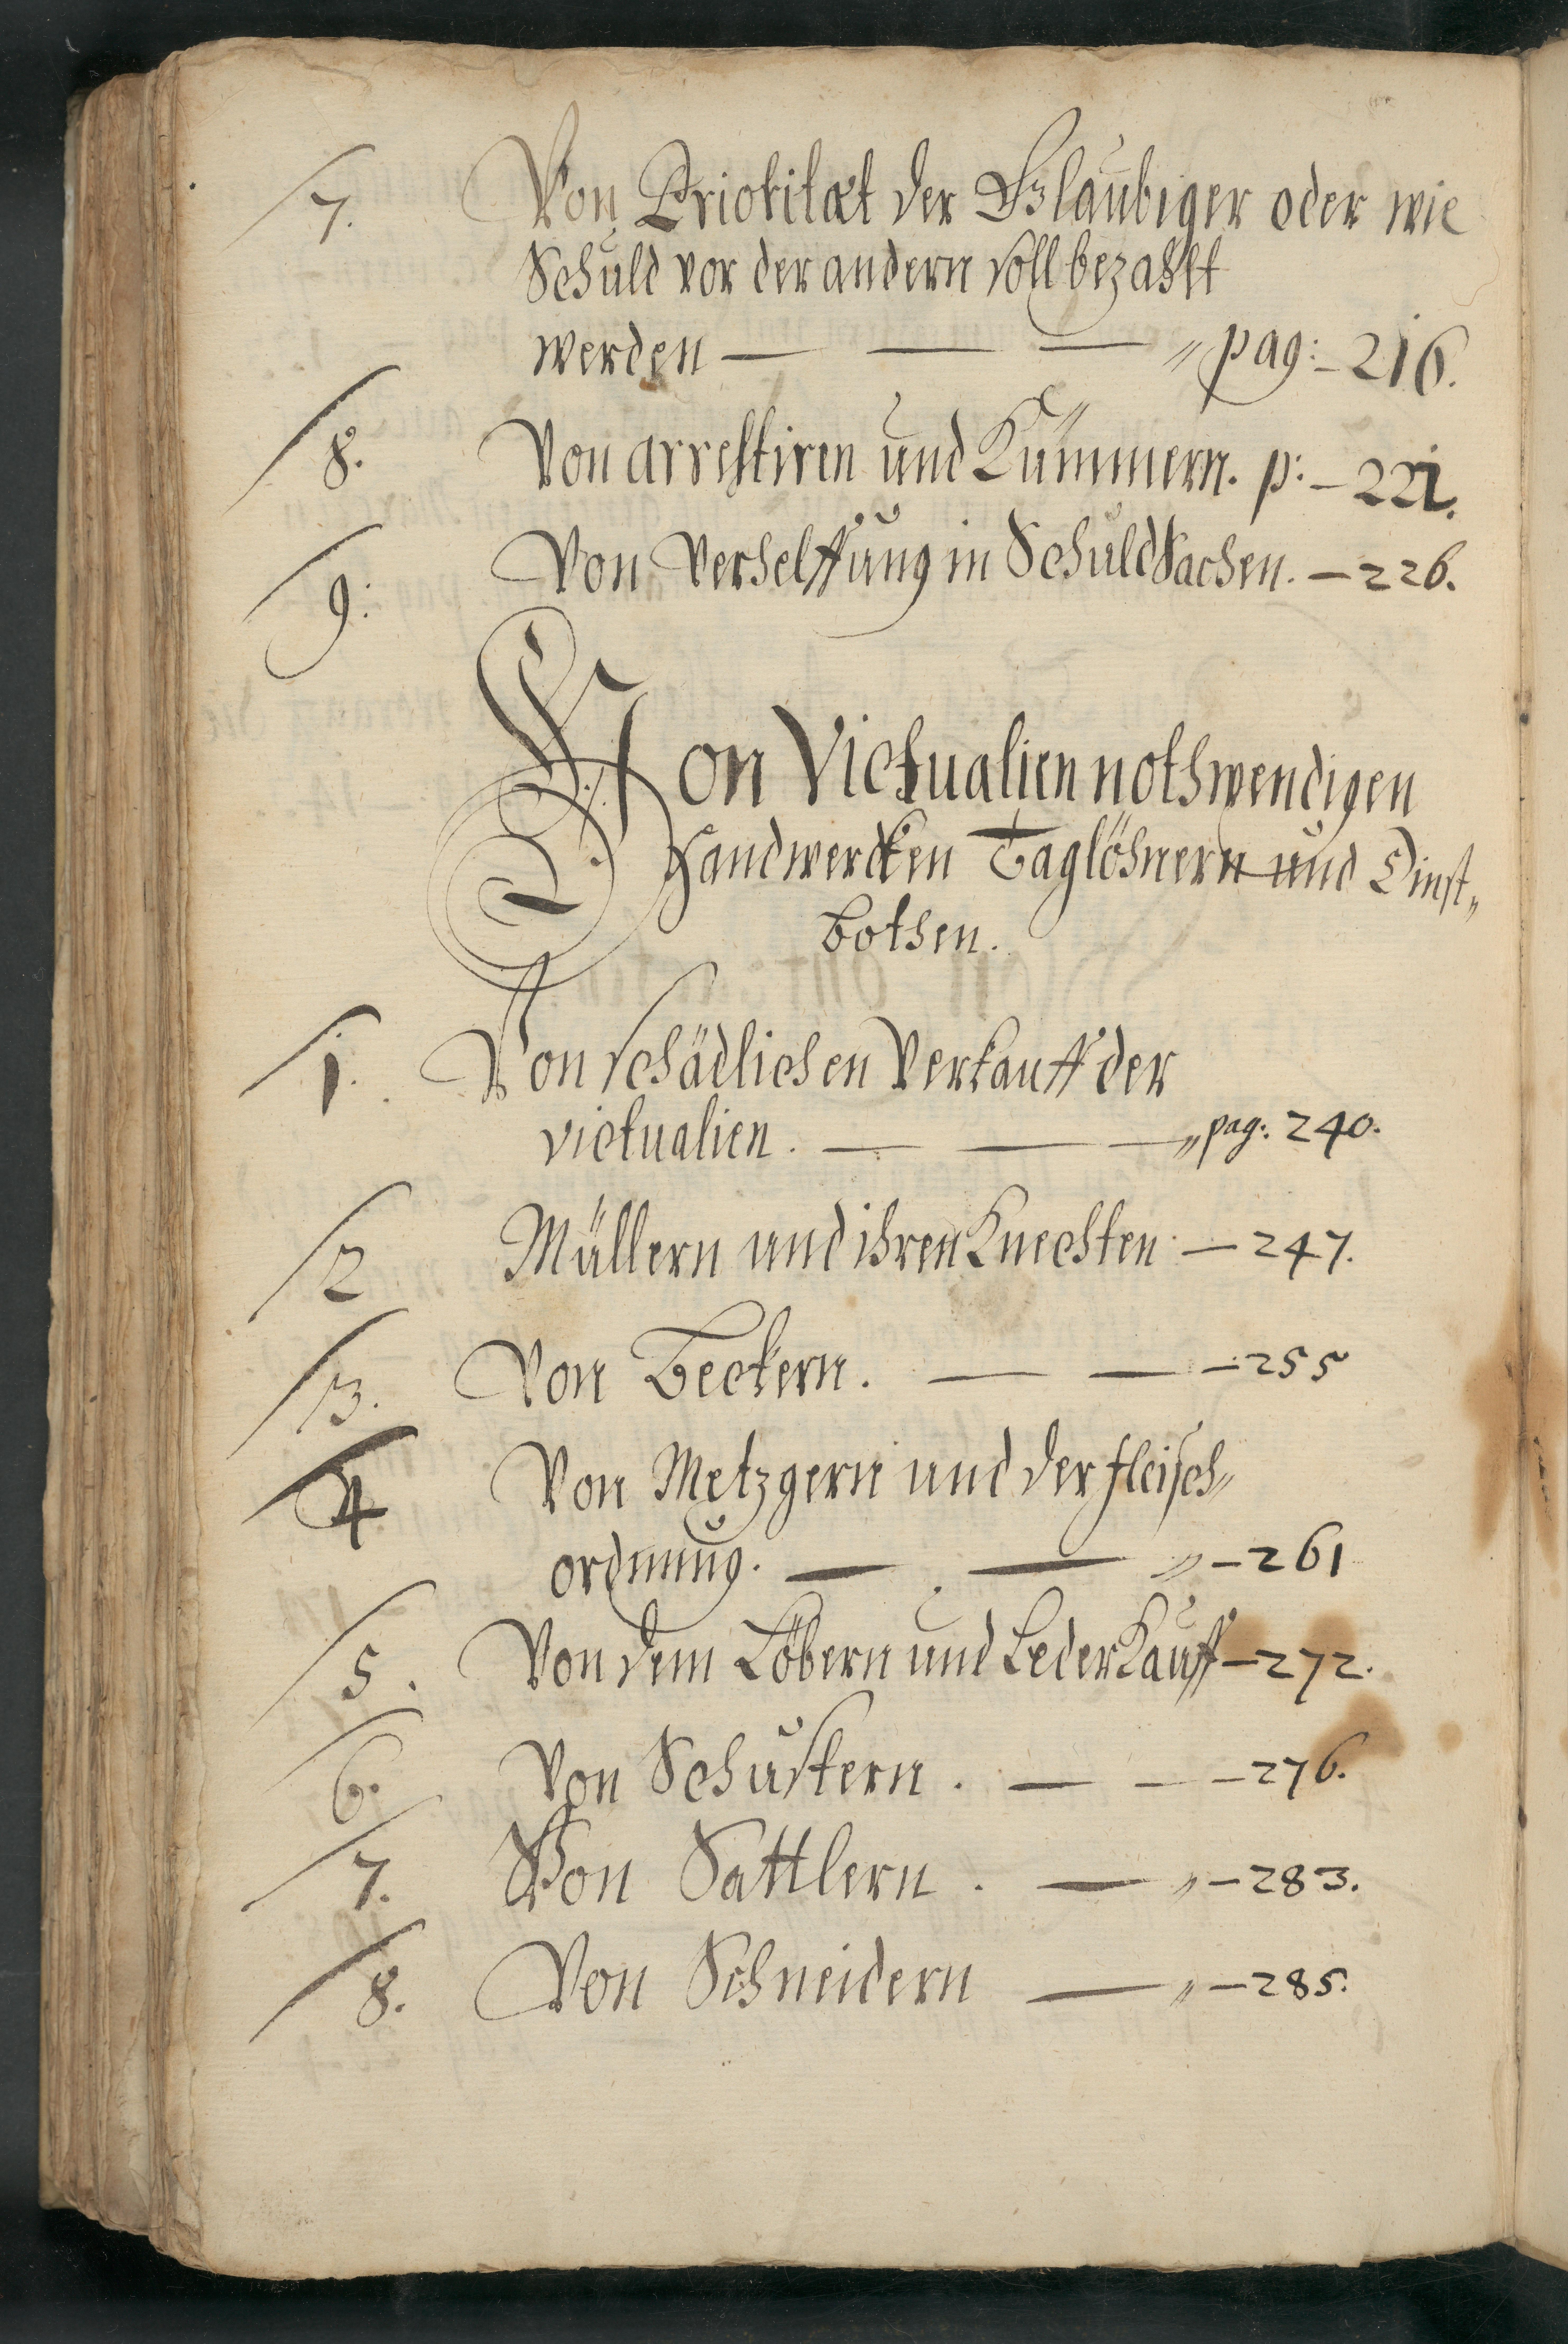 7. Von Priotitæt der Glaubiger oder wie
Schuld vor der andern soll bezahlt
werden — — — „ pag: – 216.
8. Von arrestiren und Kummern. p: – 221.
9: Von Verhelffung in Schuld Sachen. – 226.
Von Victualien nothwendigen
Handwercken Taglöhnern und Dinst„
bothen.
1. Von schädlichen Verkauff der
victualien. — — — „ pag: 240.
2 Müllern und ihren Knechten – 247.
3. Von Beckern. — — – 255
4 Von Metzgern und der fleisch„
ordnung. — — „ – 261
5. Von dem Löbern und Leder Kauff – 272.
6. Von Schustern. — – – 276.
7. Von Sattlern. — „ – 283.
8. Von Schneidern — „ – 285.